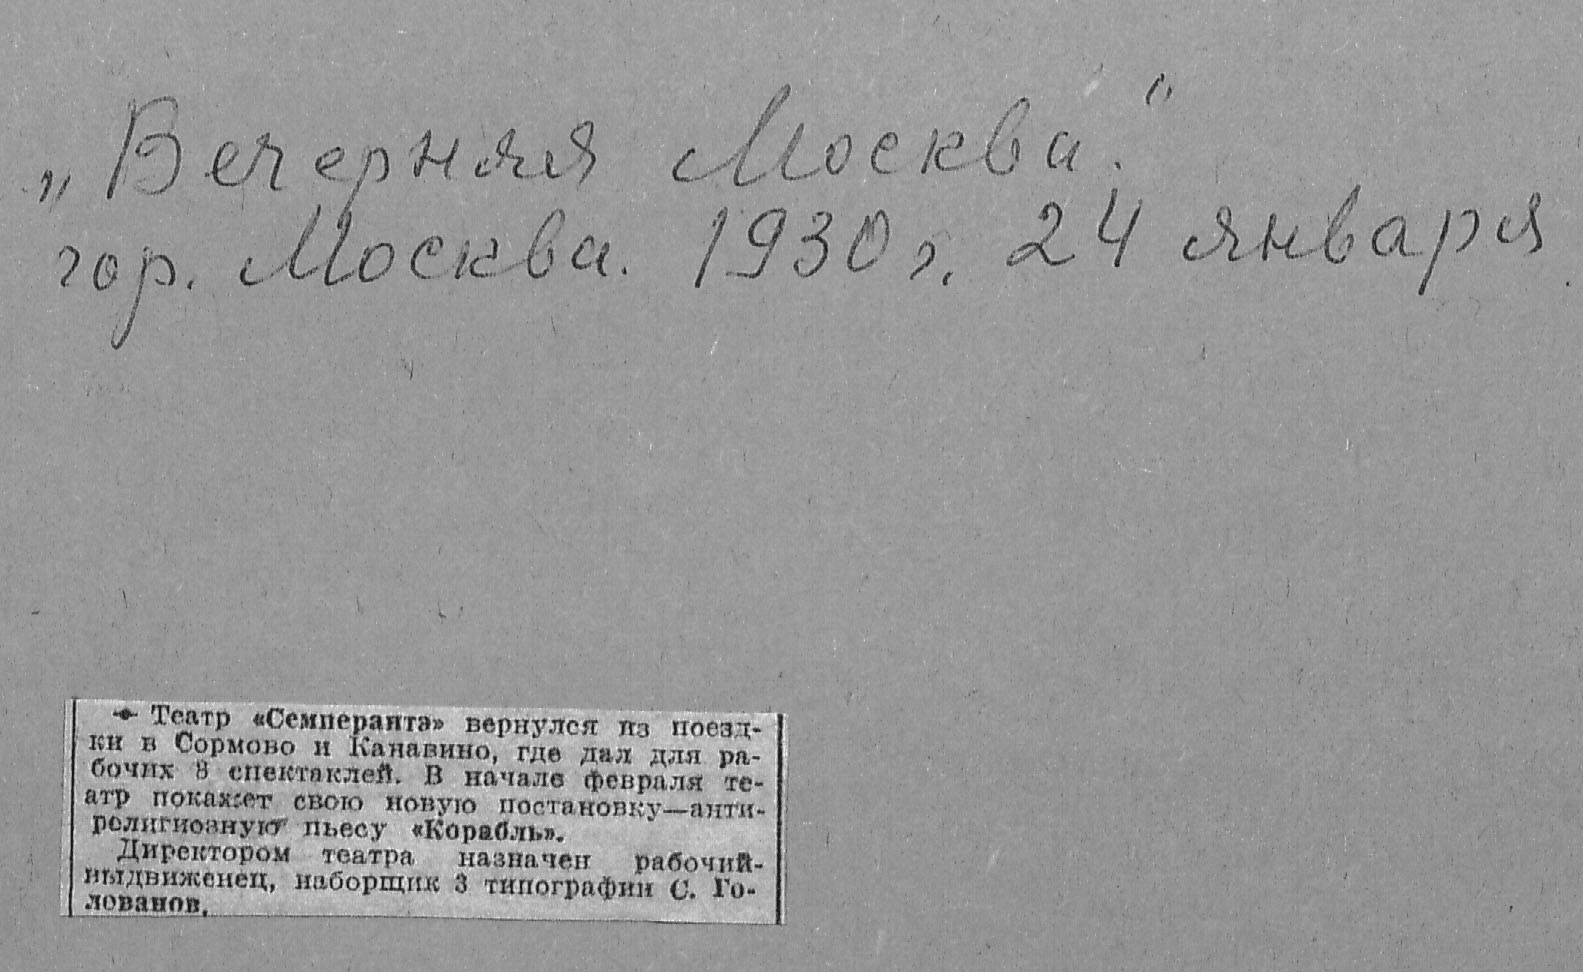 „Вечерняя Москва."
гор. Москва. 1930 г. 24 января.
Театр «Семперанта» вернулся из поезд-
ки в Сормово и Канавино, где дал для ра-
бочих 8 спектаклей. В начале февраля те-
атр покажет свою новую постановку—анти-
религиозную пьесу «Корабль».
Директором театра назначен рабочий-
выдвиженец, наборщик 3 типографии С. Го-
лованов.